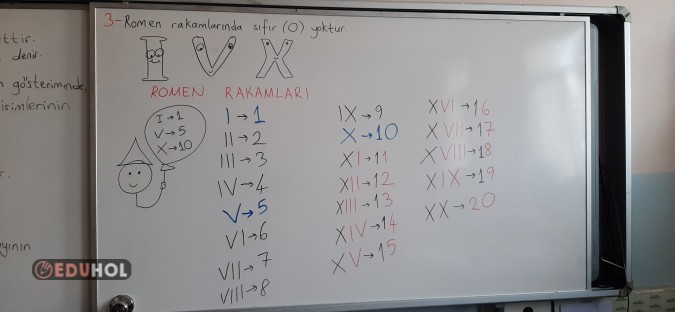 ettir.
denir.
gösteriminde,
isimlerinin
3- Romen rakamlarında sıfır (0) yoktur.
I V X
ROMEN RAKAMLARI
I→1
V→5
X→10
I→1
II→2
III→3
IV→4
V→5
VI→6
VII→7
VIII→8
IX→9
X→10
XI→11
XII→12
XIII→13
XIV→14
XV→15
XVI→16
XVII→17
XVIII→18
XIX→19
XX→20
EDUHOL